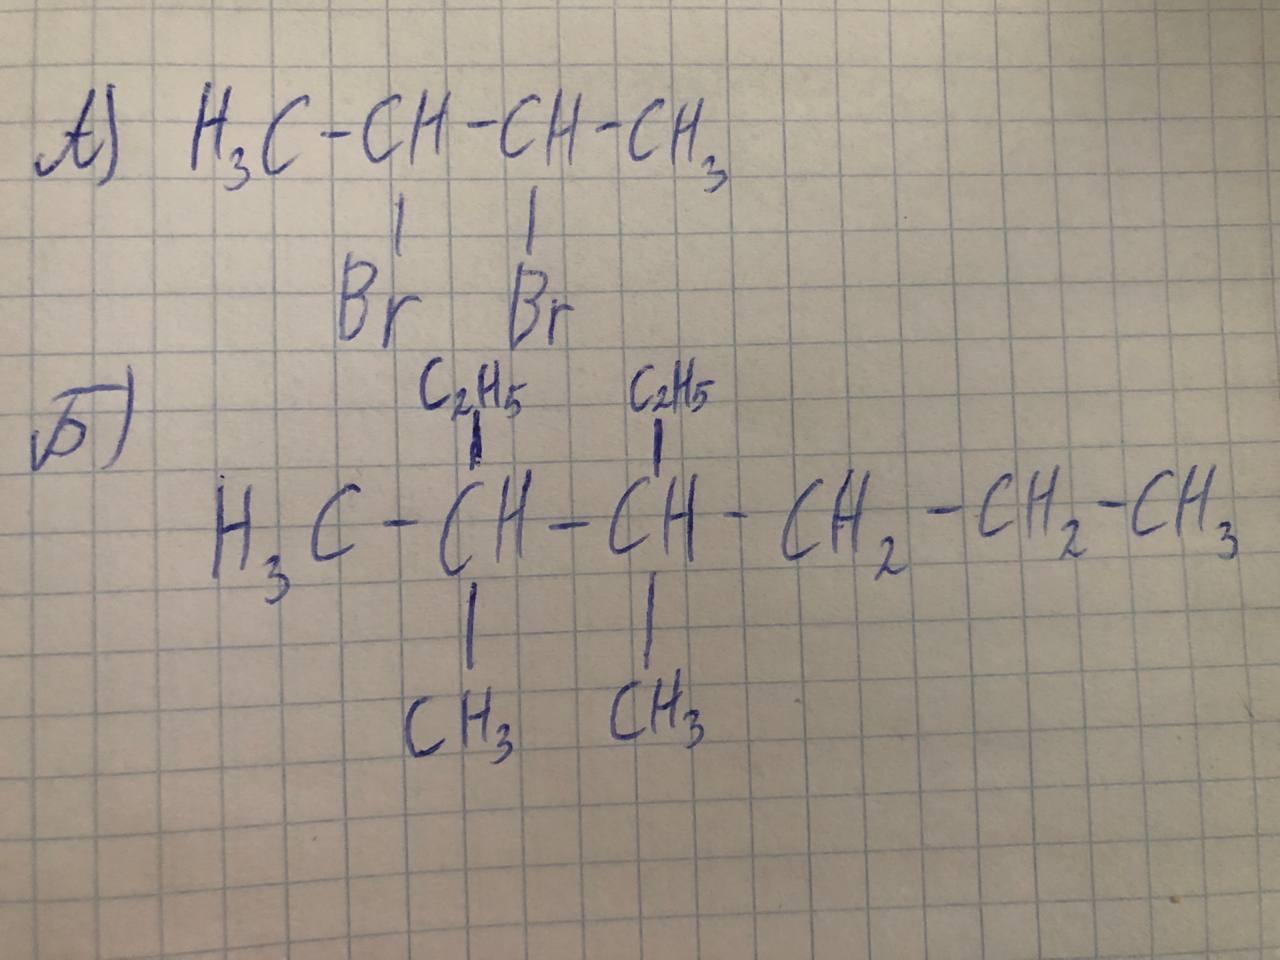 А) H₃C-CH-CH-CH₃
| |
Br Br
Б)
C₂H₅ C₂H₅
| |
H₃C-CH-CH-CH₂-CH₂-CH₃
| |
CH₃ CH₃